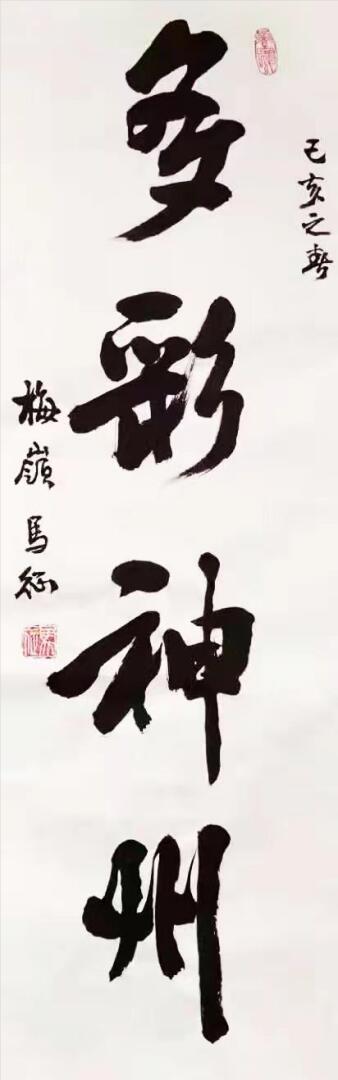 己亥之春
多彩神州
梅嶺馬征